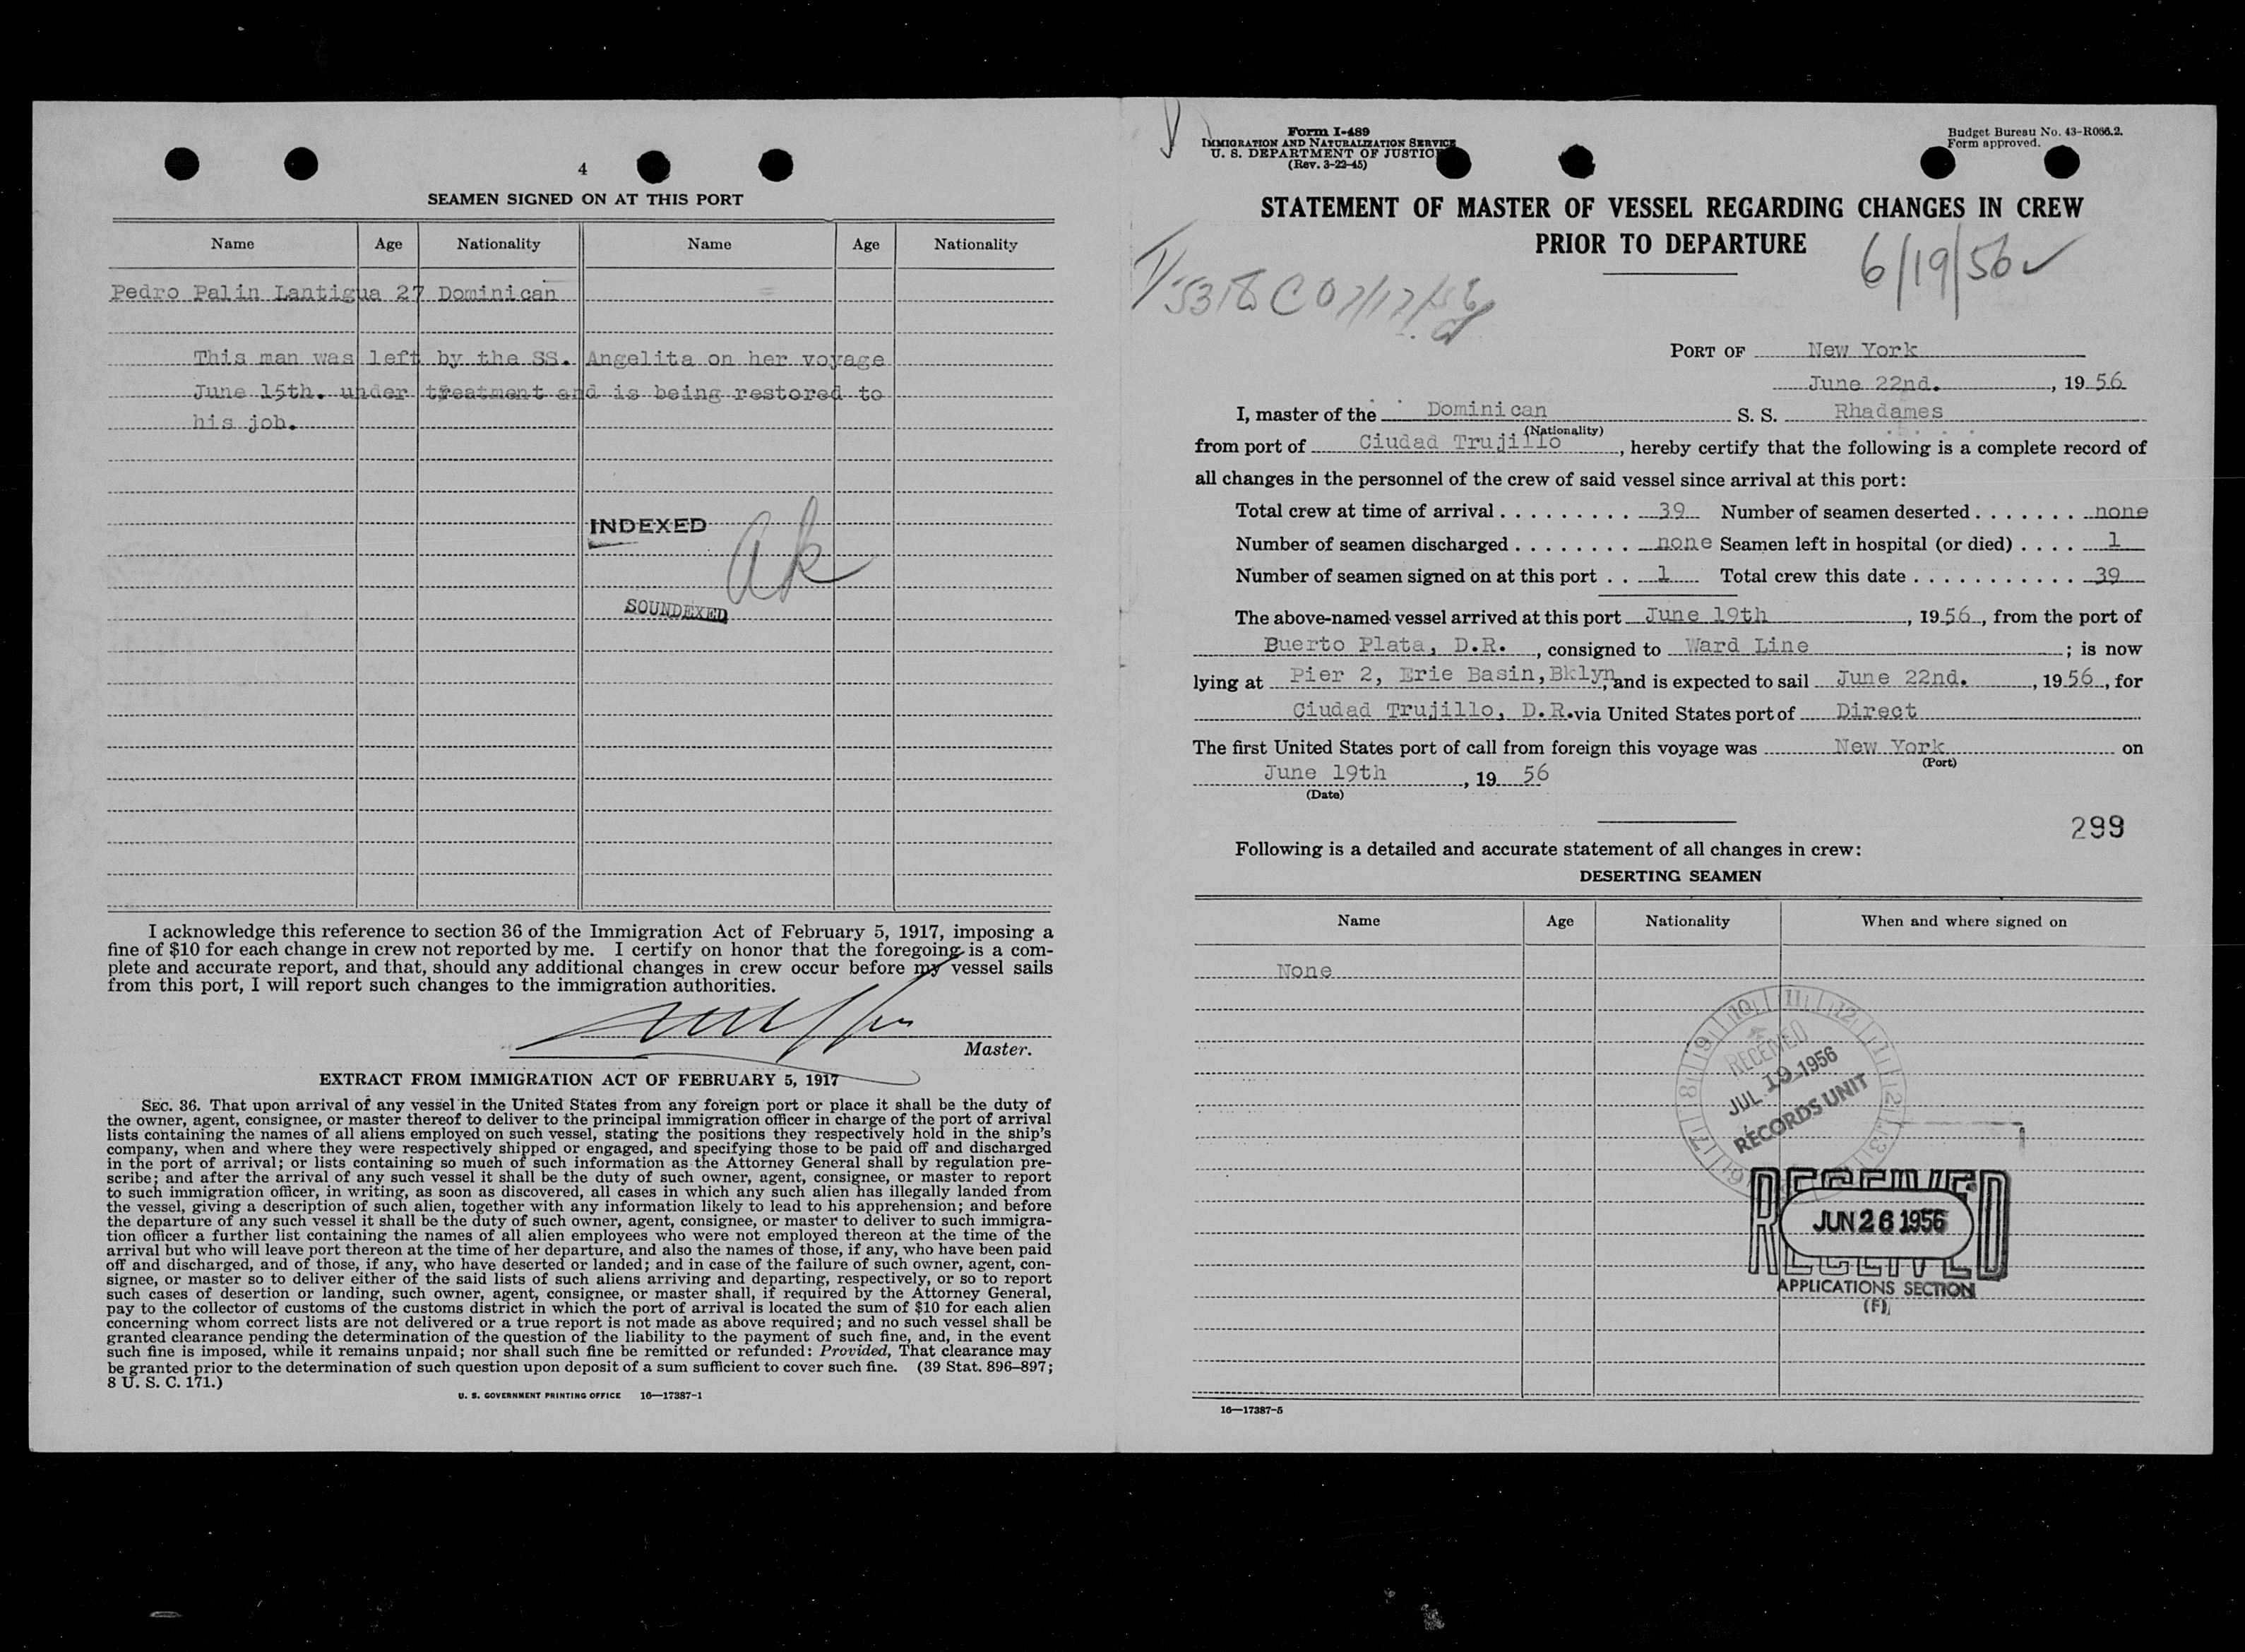 4
SEAMEN SIGNED ON AT THIS PORT
Name Age Nationality Name Age Nationality
Pedro Palin Lantigua 27 Dominican
This man was left by the SS. Angelita on her voyage
June 15th. under treatment and is being restored to
his job.
INDEXED
ak
SOUNDEXED
I acknowledge this reference to section 36 of the Immigration Act of February 5, 1917, imposing a
fine of $10 for each change in crew not reported by me. I certify on honor that the foregoing is a com-
plete and accurate report, and that, should any additional changes in crew occur before my vessel sails
from this port, I will report such changes to the immigration authorities.
Master.
EXTRACT FROM IMMIGRATION ACT OF FEBRUARY 5, 1917
SEC. 36. That upon arrival of any vessel in the United States from any foreign port or place it shall be the duty of
the owner, agent, consignee, or master thereof to deliver to the principal immigration officer in charge of the port of arrival
lists containing the names of all aliens employed on such vessel, stating the positions they respectively hold in the ship's
company, when and where they were respectively shipped or engaged, and specifying those to be paid off and discharged
in the port of arrival; or lists containing so much of such information as the Attorney General shall by regulation pre-
scribe; and after the arrival of any such vessel it shall be the duty of such owner, agent, consignee, or master to report
to such immigration officer, in writing, as soon as discovered, all cases in which any such alien has illegally landed from
the vessel, giving a description of such alien, together with any information likely to lead to his apprehension; and before
the departure of any such vessel it shall be the duty of such owner, agent, consignee, or master to deliver to such immigra-
tion officer a further list containing the names of all alien employees who were not employed thereon at the time of the
arrival but who will leave port thereon at the time of her departure, and also the names of those, if any, who have been paid
off and discharged, and of those, if any, who have deserted or landed; and in case of the failure of such owner, agent, con-
signee, or master so to deliver either of the said lists of such aliens arriving and departing, respectively, or so to report
such cases of desertion or landing, such owner, agent, consignee, or master shall, if required by the Attorney General,
pay to the collector of customs of the customs district in which the port of arrival is located the sum of $10 for each alien
concerning whom correct lists are not delivered or a true report is not made as above required; and no such vessel shall be
granted clearance pending the determination of the question of the liability to the payment of such fine, and, in the event
such fine is imposed, while it remains unpaid; nor shall such fine be remitted or refunded: Provided, That clearance may
be granted prior to the determination of such question upon deposit of a sum sufficient to cover such fine. (39 Stat. 896–897;
8 U. S. C. 171.)
U. S. GOVERNMENT PRINTING OFFICE 16—17387-1
Form I-489
IMMIGRATION AND NATURALIZATION SERVICE
U. S. DEPARTMENT OF JUSTIC
(Rev. 3-22-45)
Budget Bureau No. 43-R066.2.
Form approved.
STATEMENT OF MASTER OF VESSEL REGARDING CHANGES IN CREW
PRIOR TO DEPARTURE
6/19/56
PORT OF New York
June 22nd. , 19 56
I, master of the Dominican S. S. Rhadames
(Nationality)
from port of Ciudad Trujillo , hereby certify that the following is a complete record of
all changes in the personnel of the crew of said vessel since arrival at this port:
Total crew at time of arrival . . . . . . . . . 39 Number of seamen deserted . . . . . . . none
Number of seamen discharged . . . . . . . . none Seamen left in hospital (or died) . . . . 1
Number of seamen signed on at this port . . 1 Total crew this date . . . . . . . . . . . 39
The above-named vessel arrived at this port June 19th , 19 56 , from the port of
Buerto Plata, D.R. , consigned to Ward Line ; is now
lying at Pier 2, Erie Basin, Bklyn, and is expected to sail June 22nd. , 19 56 , for
Ciudad Trujillo, D.R. via United States port of Direct
The first United States port of call from foreign this voyage was New York on
(Port)
June 19th , 19 56
(Date)
299
Following is a detailed and accurate statement of all changes in crew:
DESERTING SEAMEN
Name Age Nationality When and where signed on
None
RECEIVED
JUL 19 1956
RECORDS UNIT
RECEIVED
JUN 26 1956
RECEIVED
APPLICATIONS SECTION
(F)
16—17387-5